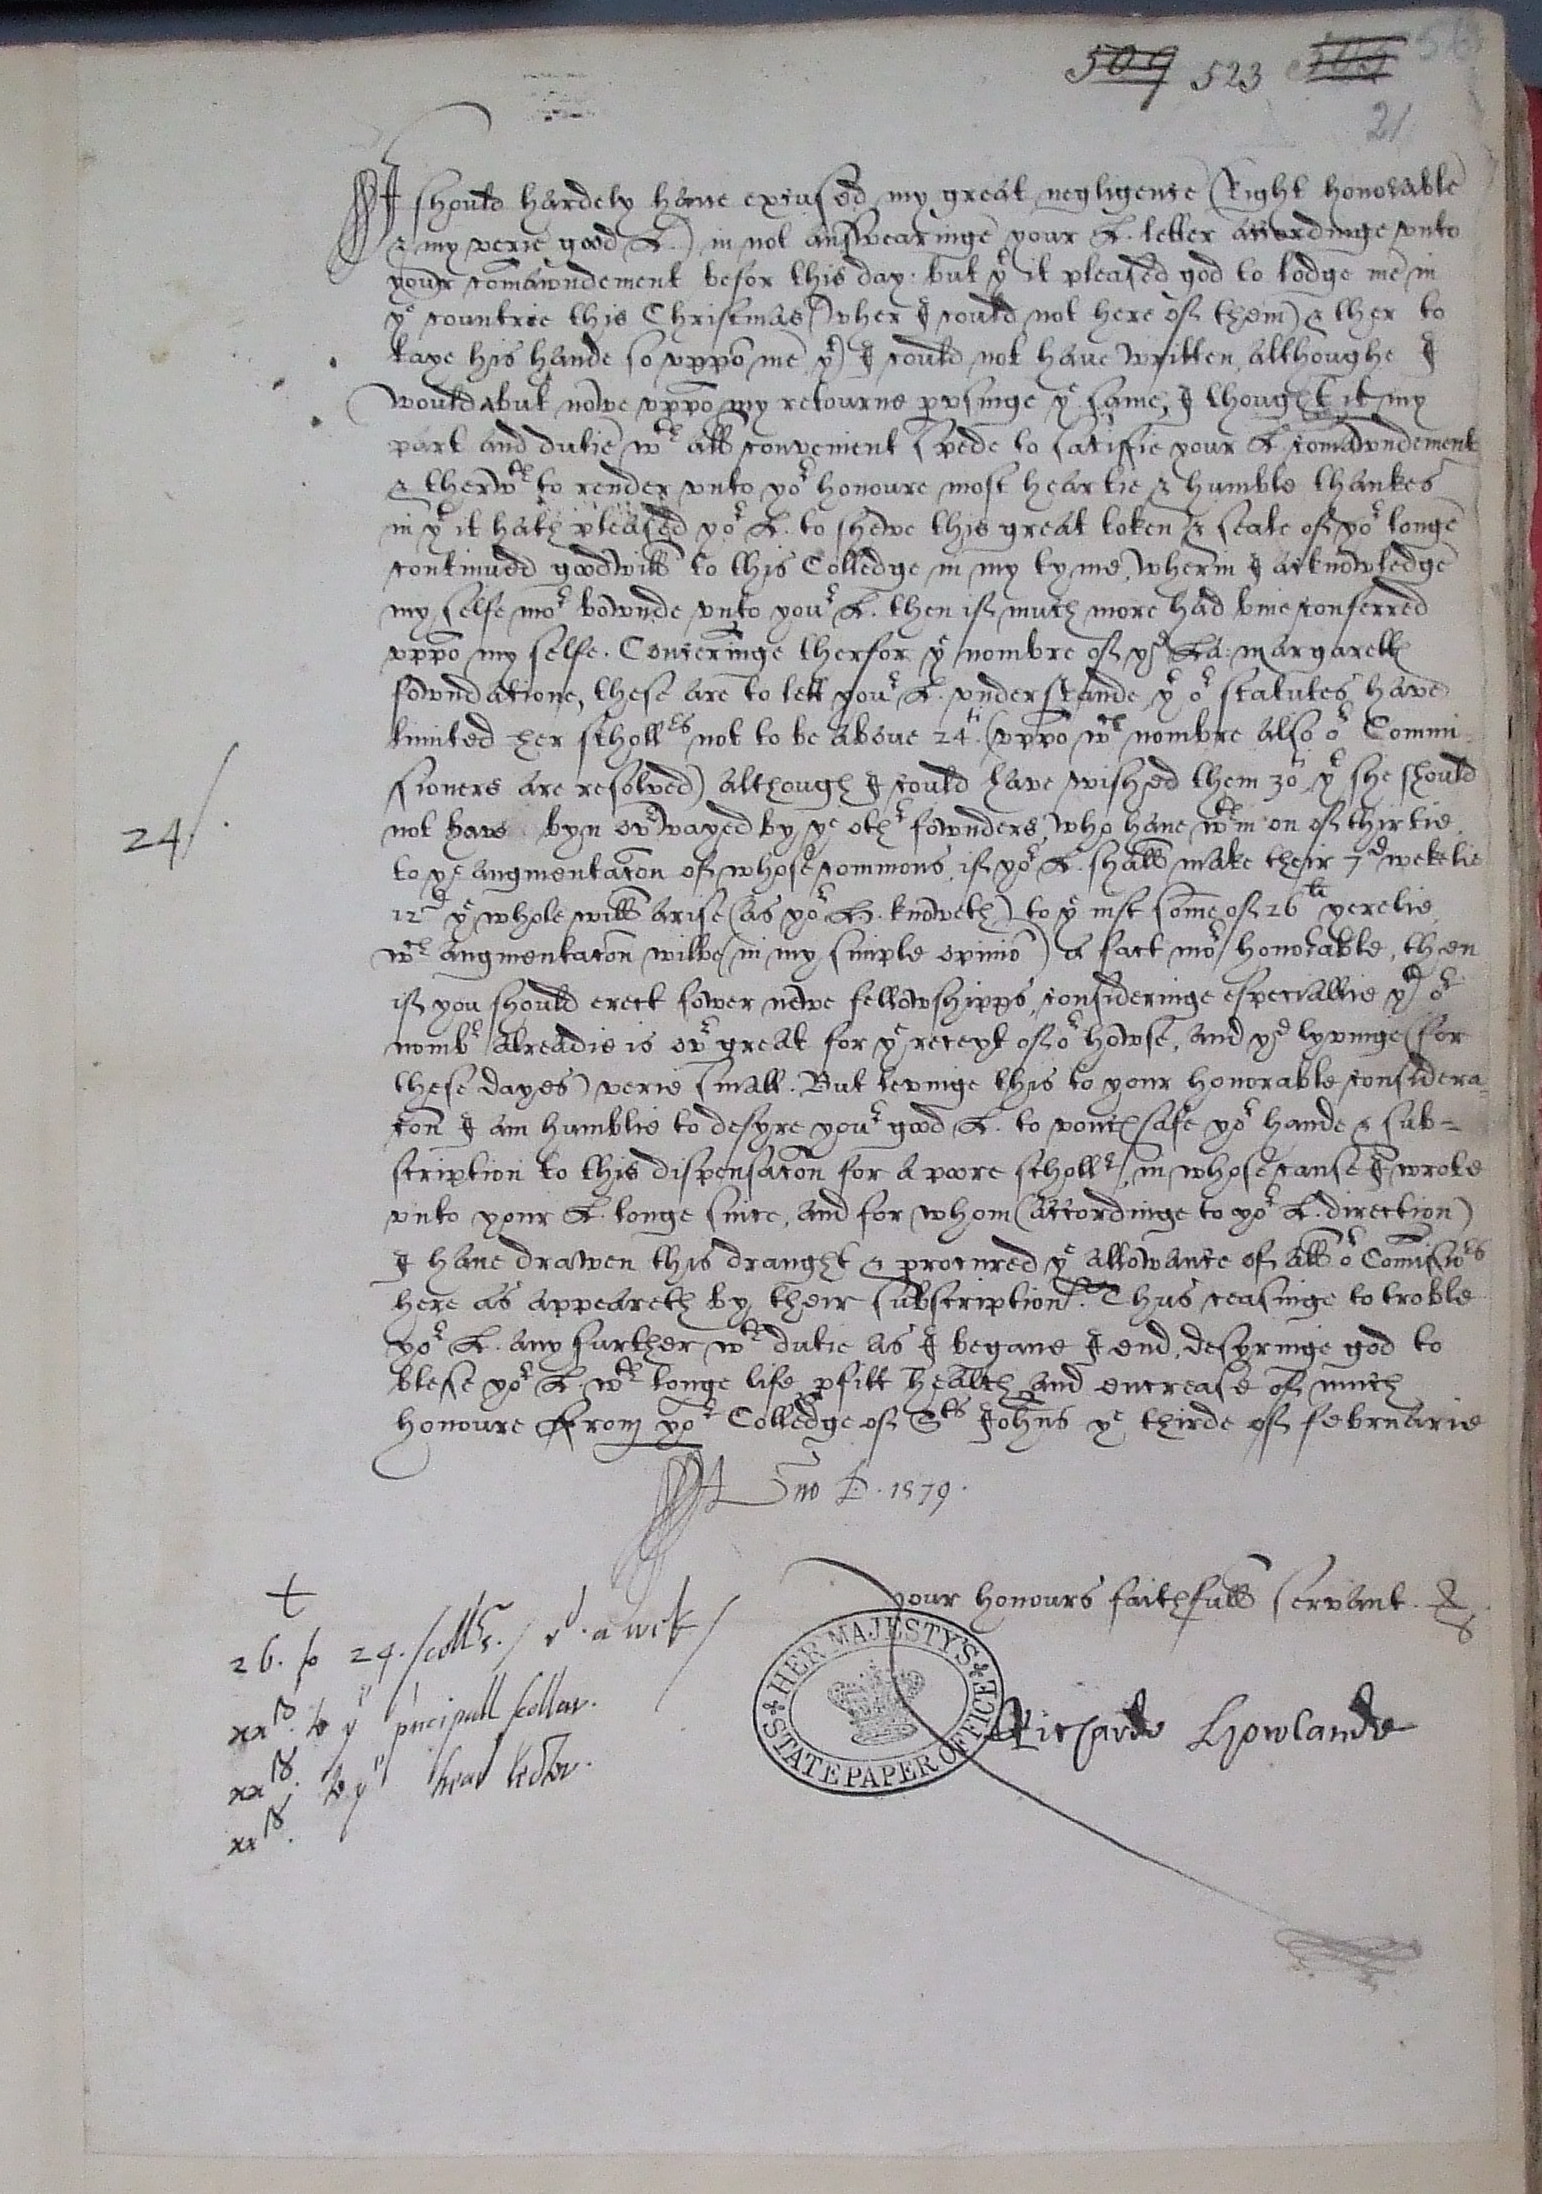 509 523 505 56
21
I should hardely have excused my great negligence (Right honorable
& my verie good L.) in not answearinge your L. letter accordinge vnto
your com̄awndement befor this day: but yt it pleased god to lodge me in
ye countrie this Christmas (wher I could not here of them) & ther to
laye his hande so vppō me yt I could not have written, althoughe I
would, but nowe vppō my retourne pvsinge ye same, I thought it my
part and dutie wth all convenient spede to satisfie your L. com̄awndement
& therwth to render vnto yor honoure most heartie & humble thankes
in yt it hath pleased yor L. to shewe this great token & seale of yor longe
continued goodwill to this Colledge in my tyme, wherin I acknowledge
my selfe mor bownde vnto your L. then if much more had bine conferred
vppō my selfe. Conceringe therfor ye nombre of ye La: margarett
fowndatione, these are to lett your L. vnderstande yt or statutes have
limited her schollers not to be above 24ti. (vppō wch nombre also or Commi-
sioners are resolved) although I could have wished them 30ti yt she should
not have byn overwayed by ye other fownders, who have wthin on of thirtie.
24/.
to ye augmentacōn of whose commons, if yor L. shall make their 7d wekelie
12d ye whole will arise (as yor H. knoweth) to ye just some of 26li yerelie,
wch augmentacōn wilbe (in my simple opiniō) a fact mor honorable, then
if you should erect fower newe fellowshipps, consideringe especiallie yt or
nombr alreadie is over great for ye receyt of or howse, and ye lyvinge (for
these dayes) verie small. But levinge this to your honorable considera
cōn I am humblie to desyre your good L. to vouchsafe yor hande & sub=
scription to this dispensacōn for a poore scholler, in whose cause I wrote
vnto your L. longe since, and for whom (accordinge to yor L. direction)
I have drawen this draught & procured ye allowance of all or Com̄issiors
here as appeareth by their subscriptions. Thus ceasinge to troble
yor L. any further wth dutie as I begane I end, desyringe god to
blesse yor L. wth longe life, pfitt health and encrease of much
honoure From yor Colledge of Sts Johns ye thirde of februarie
Āno D. 1579.
your honours faithfull servant.
Richarde Howlande
+
26. to 24. schollrs. / vd. a wek /
xxs. to ye principall scollar.
xxs. to ye head lector.
xxs.
HER MAJESTY'S
STATE PAPER OFFICE